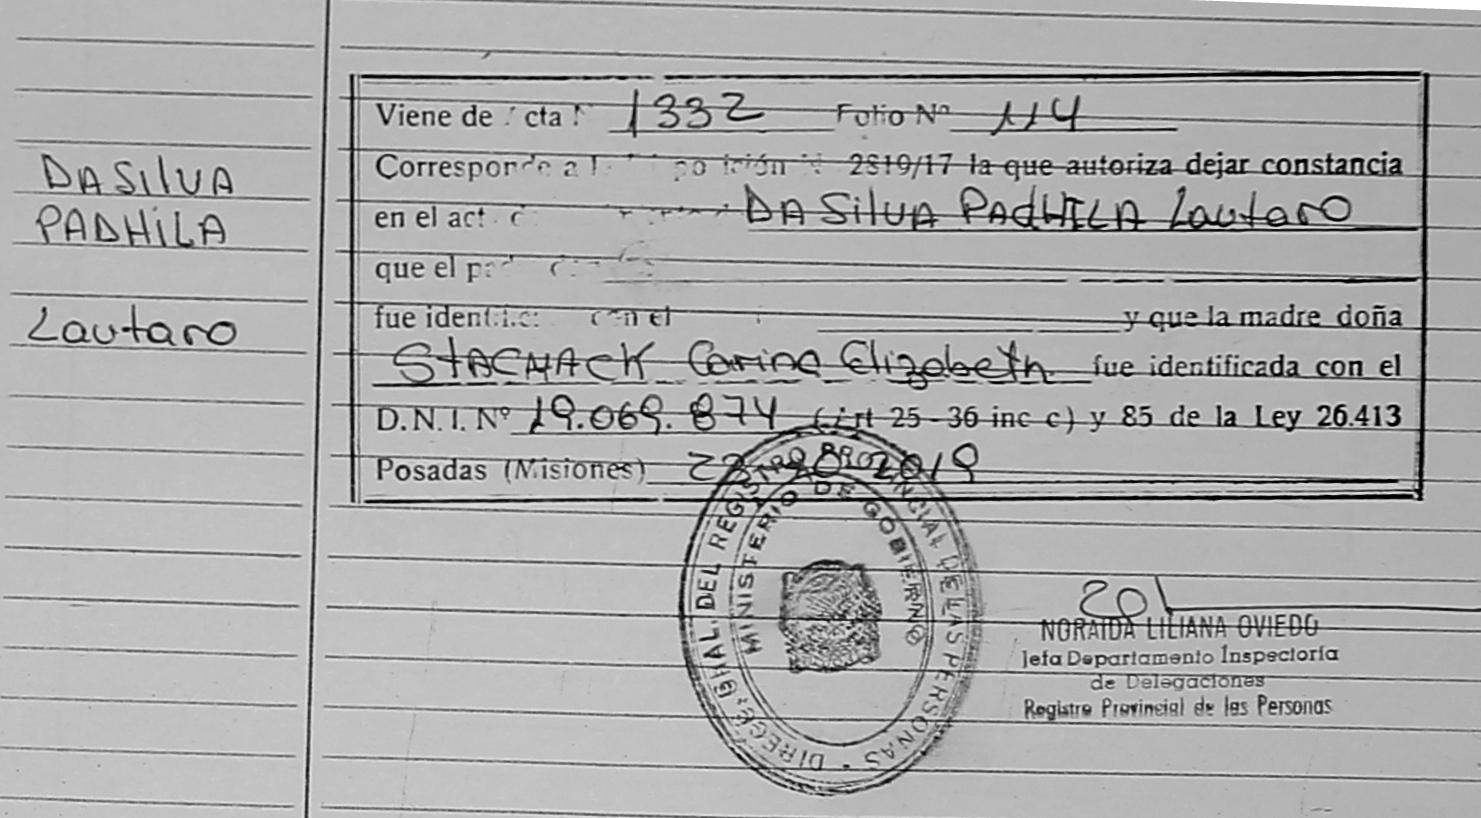 DA SilVA
PADHILA
Lautaro
Viene de cta N 1332 Folio Nº 114
Corresponde a 2819/17 la que autoriza dejar constancia
en el act DA SilVA PADHILA Lautaro
que el
fue con el y que la madre doña
Carina Elizabeth fue identificada con el
D.N.I. Nº 19.069.874 (Art 25-36 inc c) y 85 de la Ley 26.413
Posadas (Misiones) 2019
DIRECC. GRAL. DEL REGISTRO PROVINCIAL DE LAS PERSONAS
MINISTERIO DE GOBIERNO
NORAIDA LILIANA OVIEDO
Jefa Departamento Inspectoría
de Delegaciones
Registro Provincial de las Personas